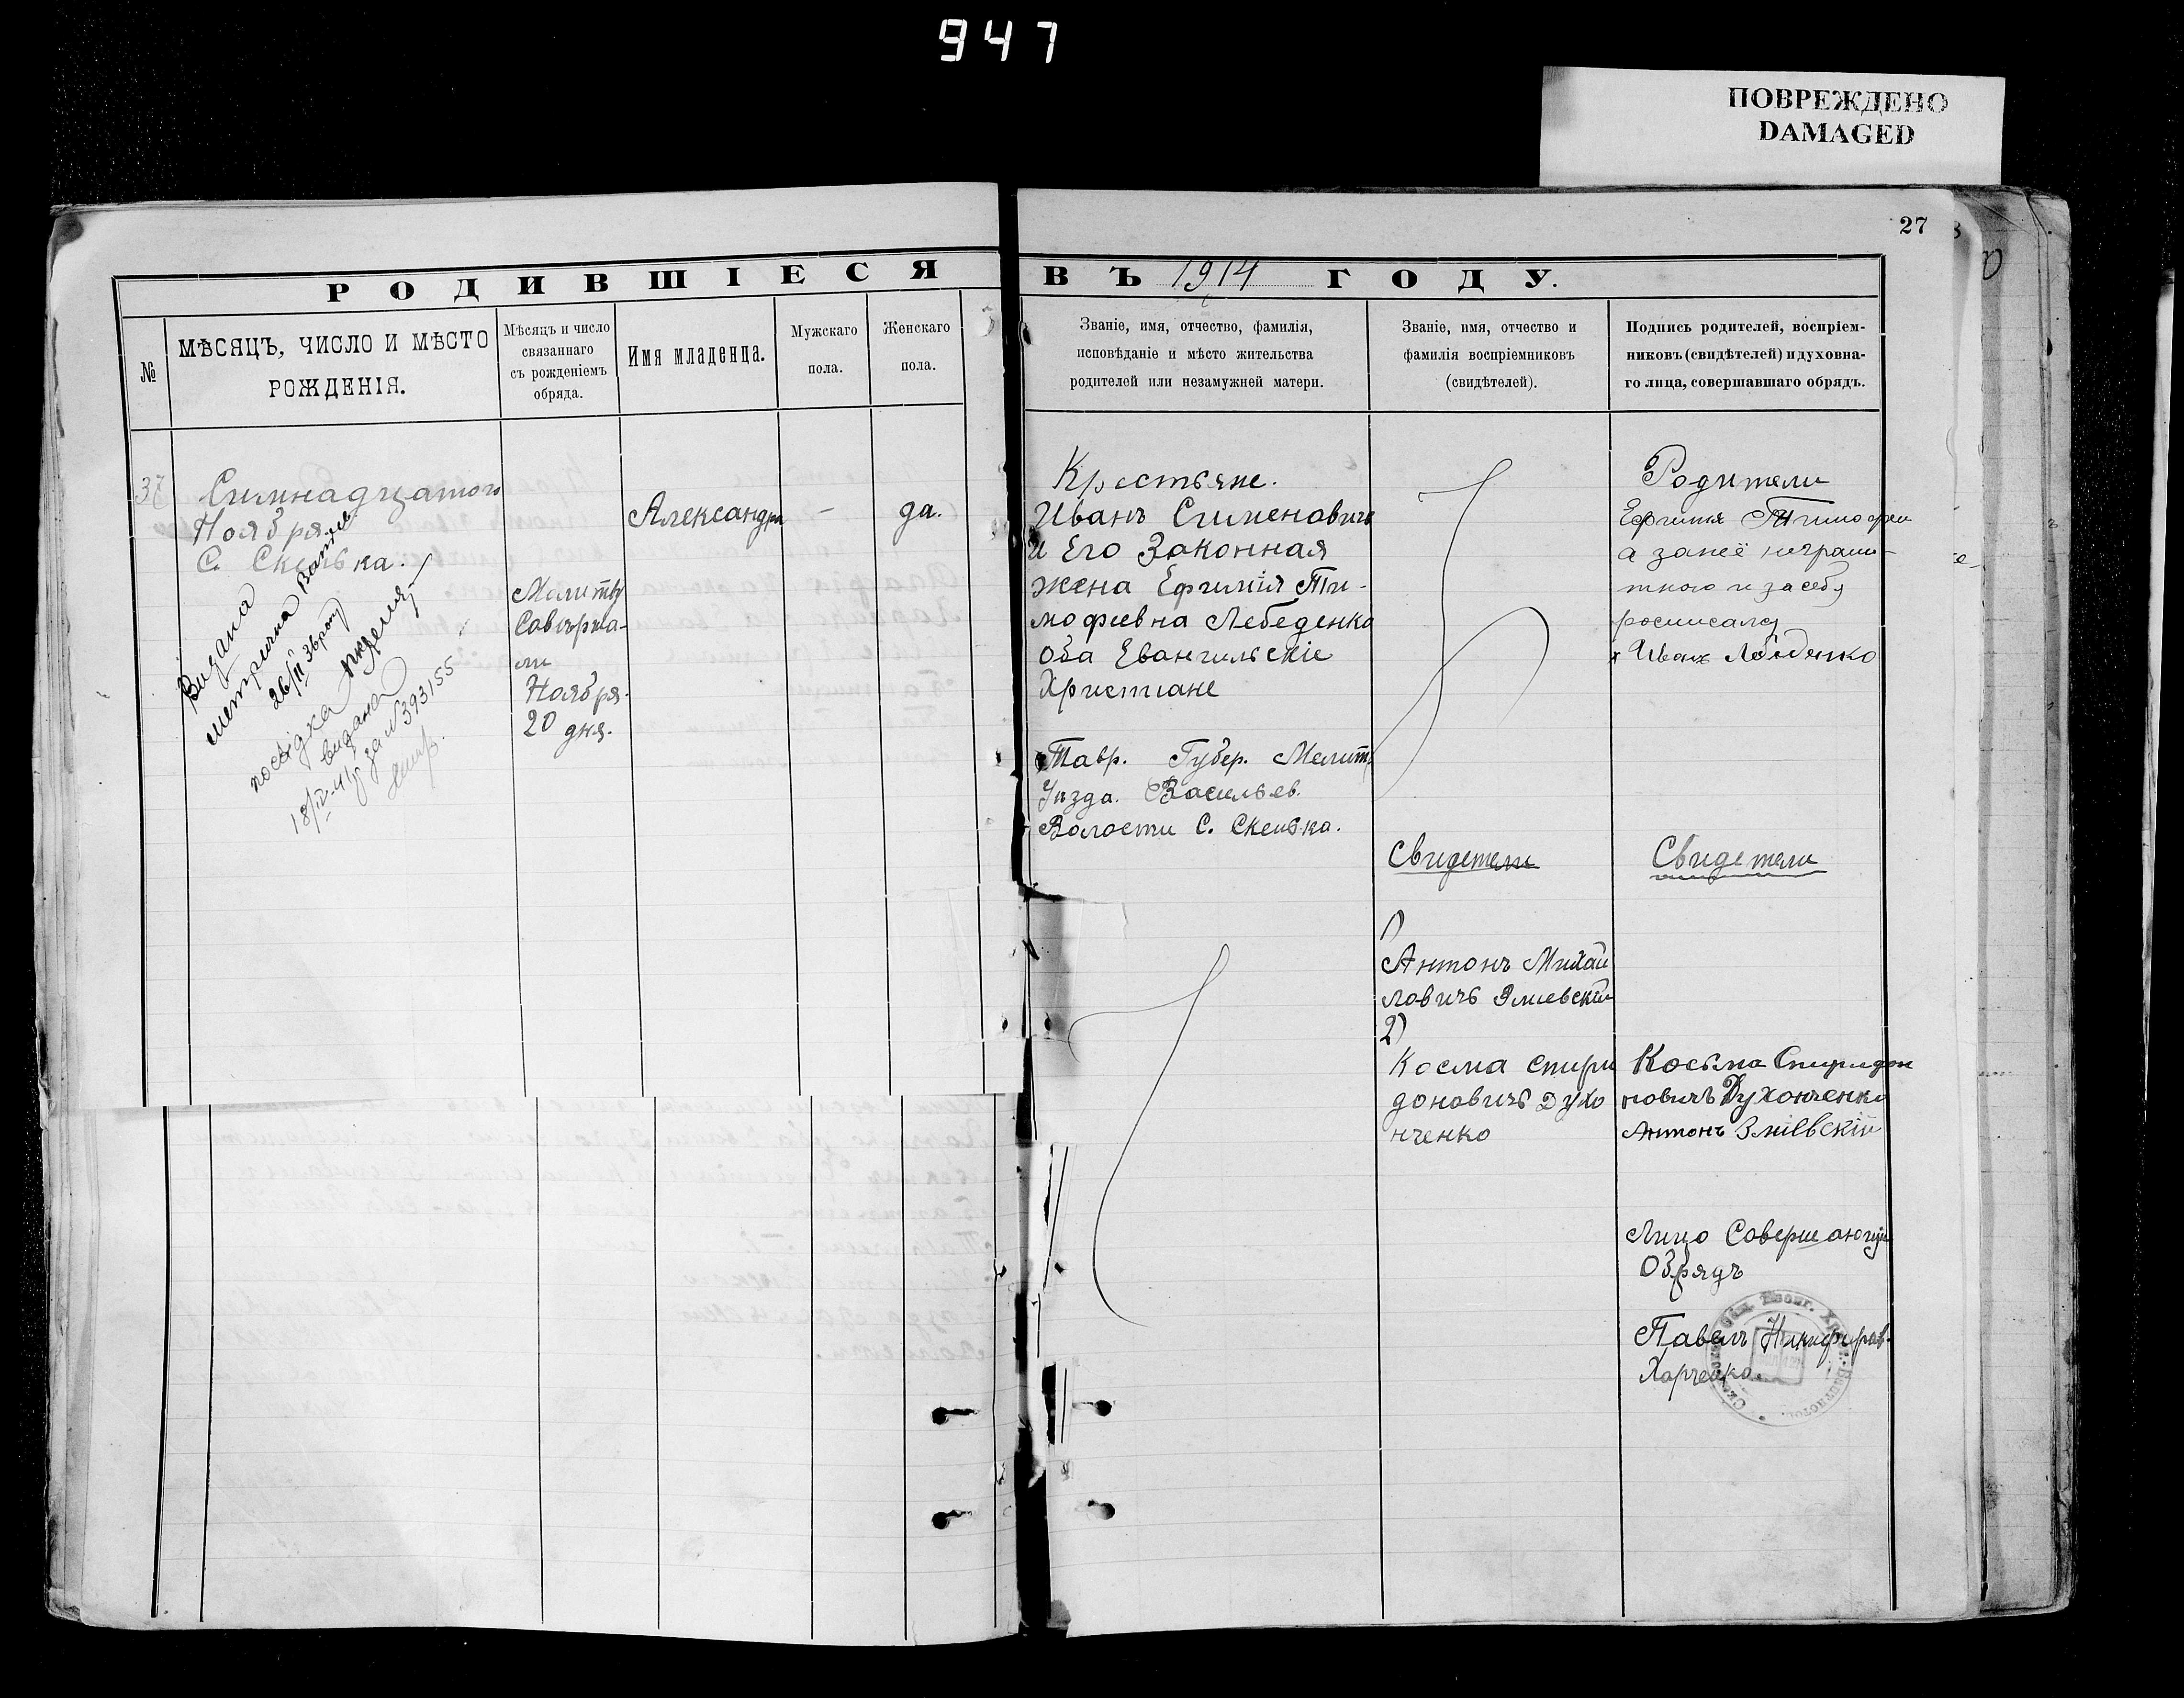 947
ПОВРЕЖДЕНО
DAMAGED
27
РОДИВШІЕСЯ ВЪ 1914 ГОДУ.
№
МѢСЯЦЪ, ЧИСЛО И МѢСТО
РОЖДЕНІЯ.
Мѣсяцъ и число
связаннаго
съ рожденіемъ
обряда.
Имя младенца.
Мужскаго
пола.
Женскаго
пола.
Званіе, имя, отчество, фамилія,
исповѣданіе и мѣсто жительства
родителей или незамужней матери.
Званіе, имя, отчество и
фамилія воспріемниковъ
(свидѣтелей).
Подпись родителей, воспріем-
никовъ (свидѣтелей) и духовна-
го лица, совершавшаго обрядъ.
37
Симнадцатого
Ноября
С. Скелька.
Видана
метрична
26/II 36 року
посвідка
видана
18/IV-41 р за № 393155
Молитву
Савѣрша-
ли
Ноября
20 дня.
Александра
-
да.
Крестьяне.
Иванъ Сименовичъ
и Его Законная
жена Ефимія Ти-
мофиевна Лебеденко
оба Евангильскіе
Христиане
Тавр. Губер. Мелит.
Уѣзда. Васильев.
Волости С. Скелька.
Свидетели
1)
Антонъ Михай
ловичъ Змиевскій
2)
Косма Спири
доновичъ Духо
нченко
Родители
Ефимия Тимофеи
а занеё неграм-
тною и за себя
росписался
Иван Лебеденко
Свидетели
Косьма Спиридон
новичъ Духонченко
Антонъ Зміевскій
Лицо Совершающій
Обрядъ
Павелъ Никифоров.
Харченко.